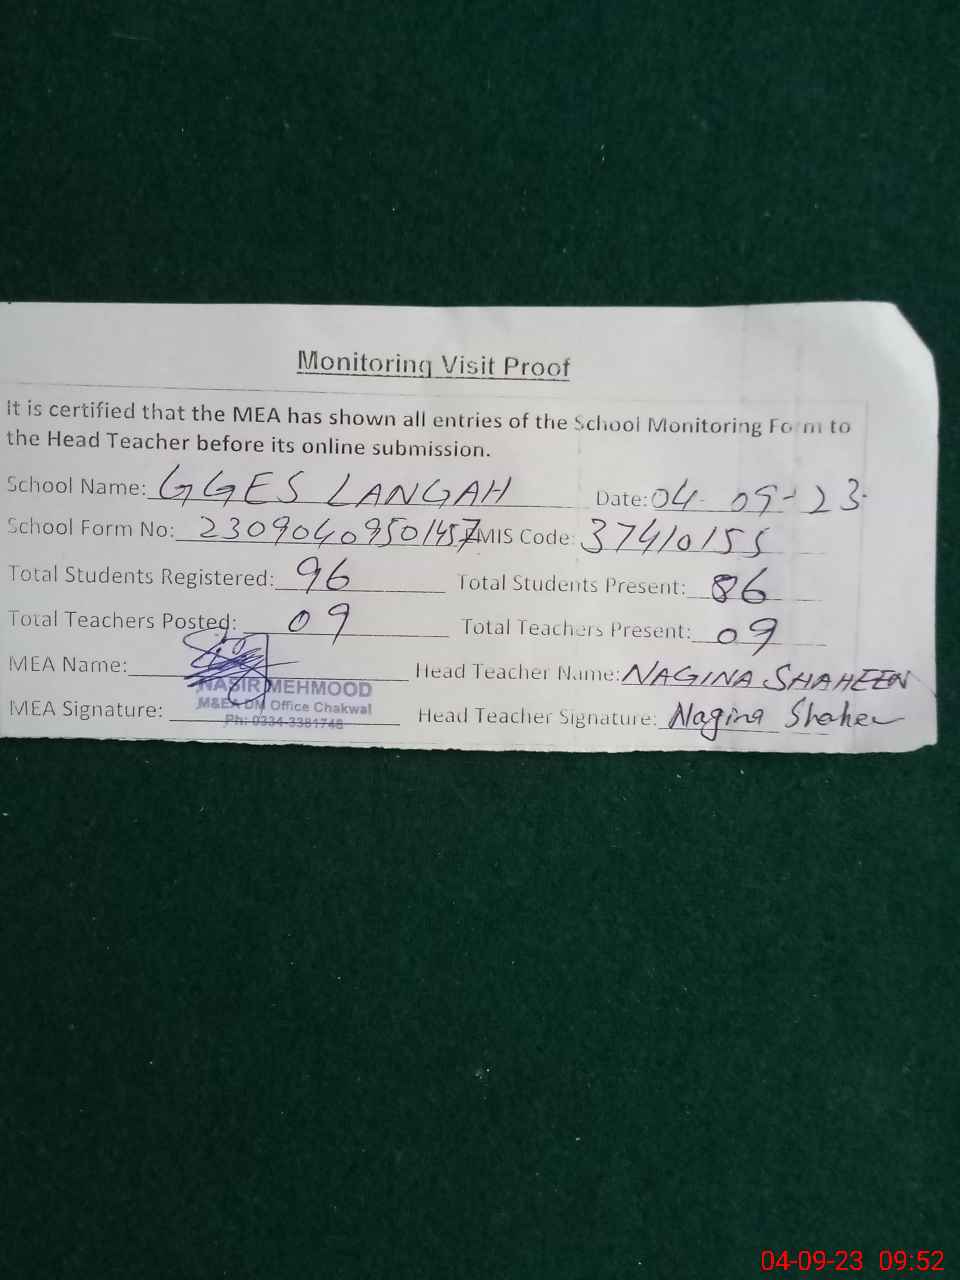 Monitoring Visit Proof
It is certified that the MEA has shown all entries of the School Monitoring Form to
the Head Teacher before its online submission.
School Name: GGES LANGAH Date: 04-09-23
School Form No: 23090409501457 EMIS Code: 37410155
Total Students Registered: 96 Total Students Present: 86
Total Teachers Posted: 09 Total Teachers Present: 09
MEA Name: Head Teacher Name: NAGINA SHAHEEN
NASIR MEHMOOD
M&EA DM Office Chakwal
Ph: 0334-3381748
MEA Signature: Head Teacher Signature: Nagina Shaheen
04-09-23 09:52